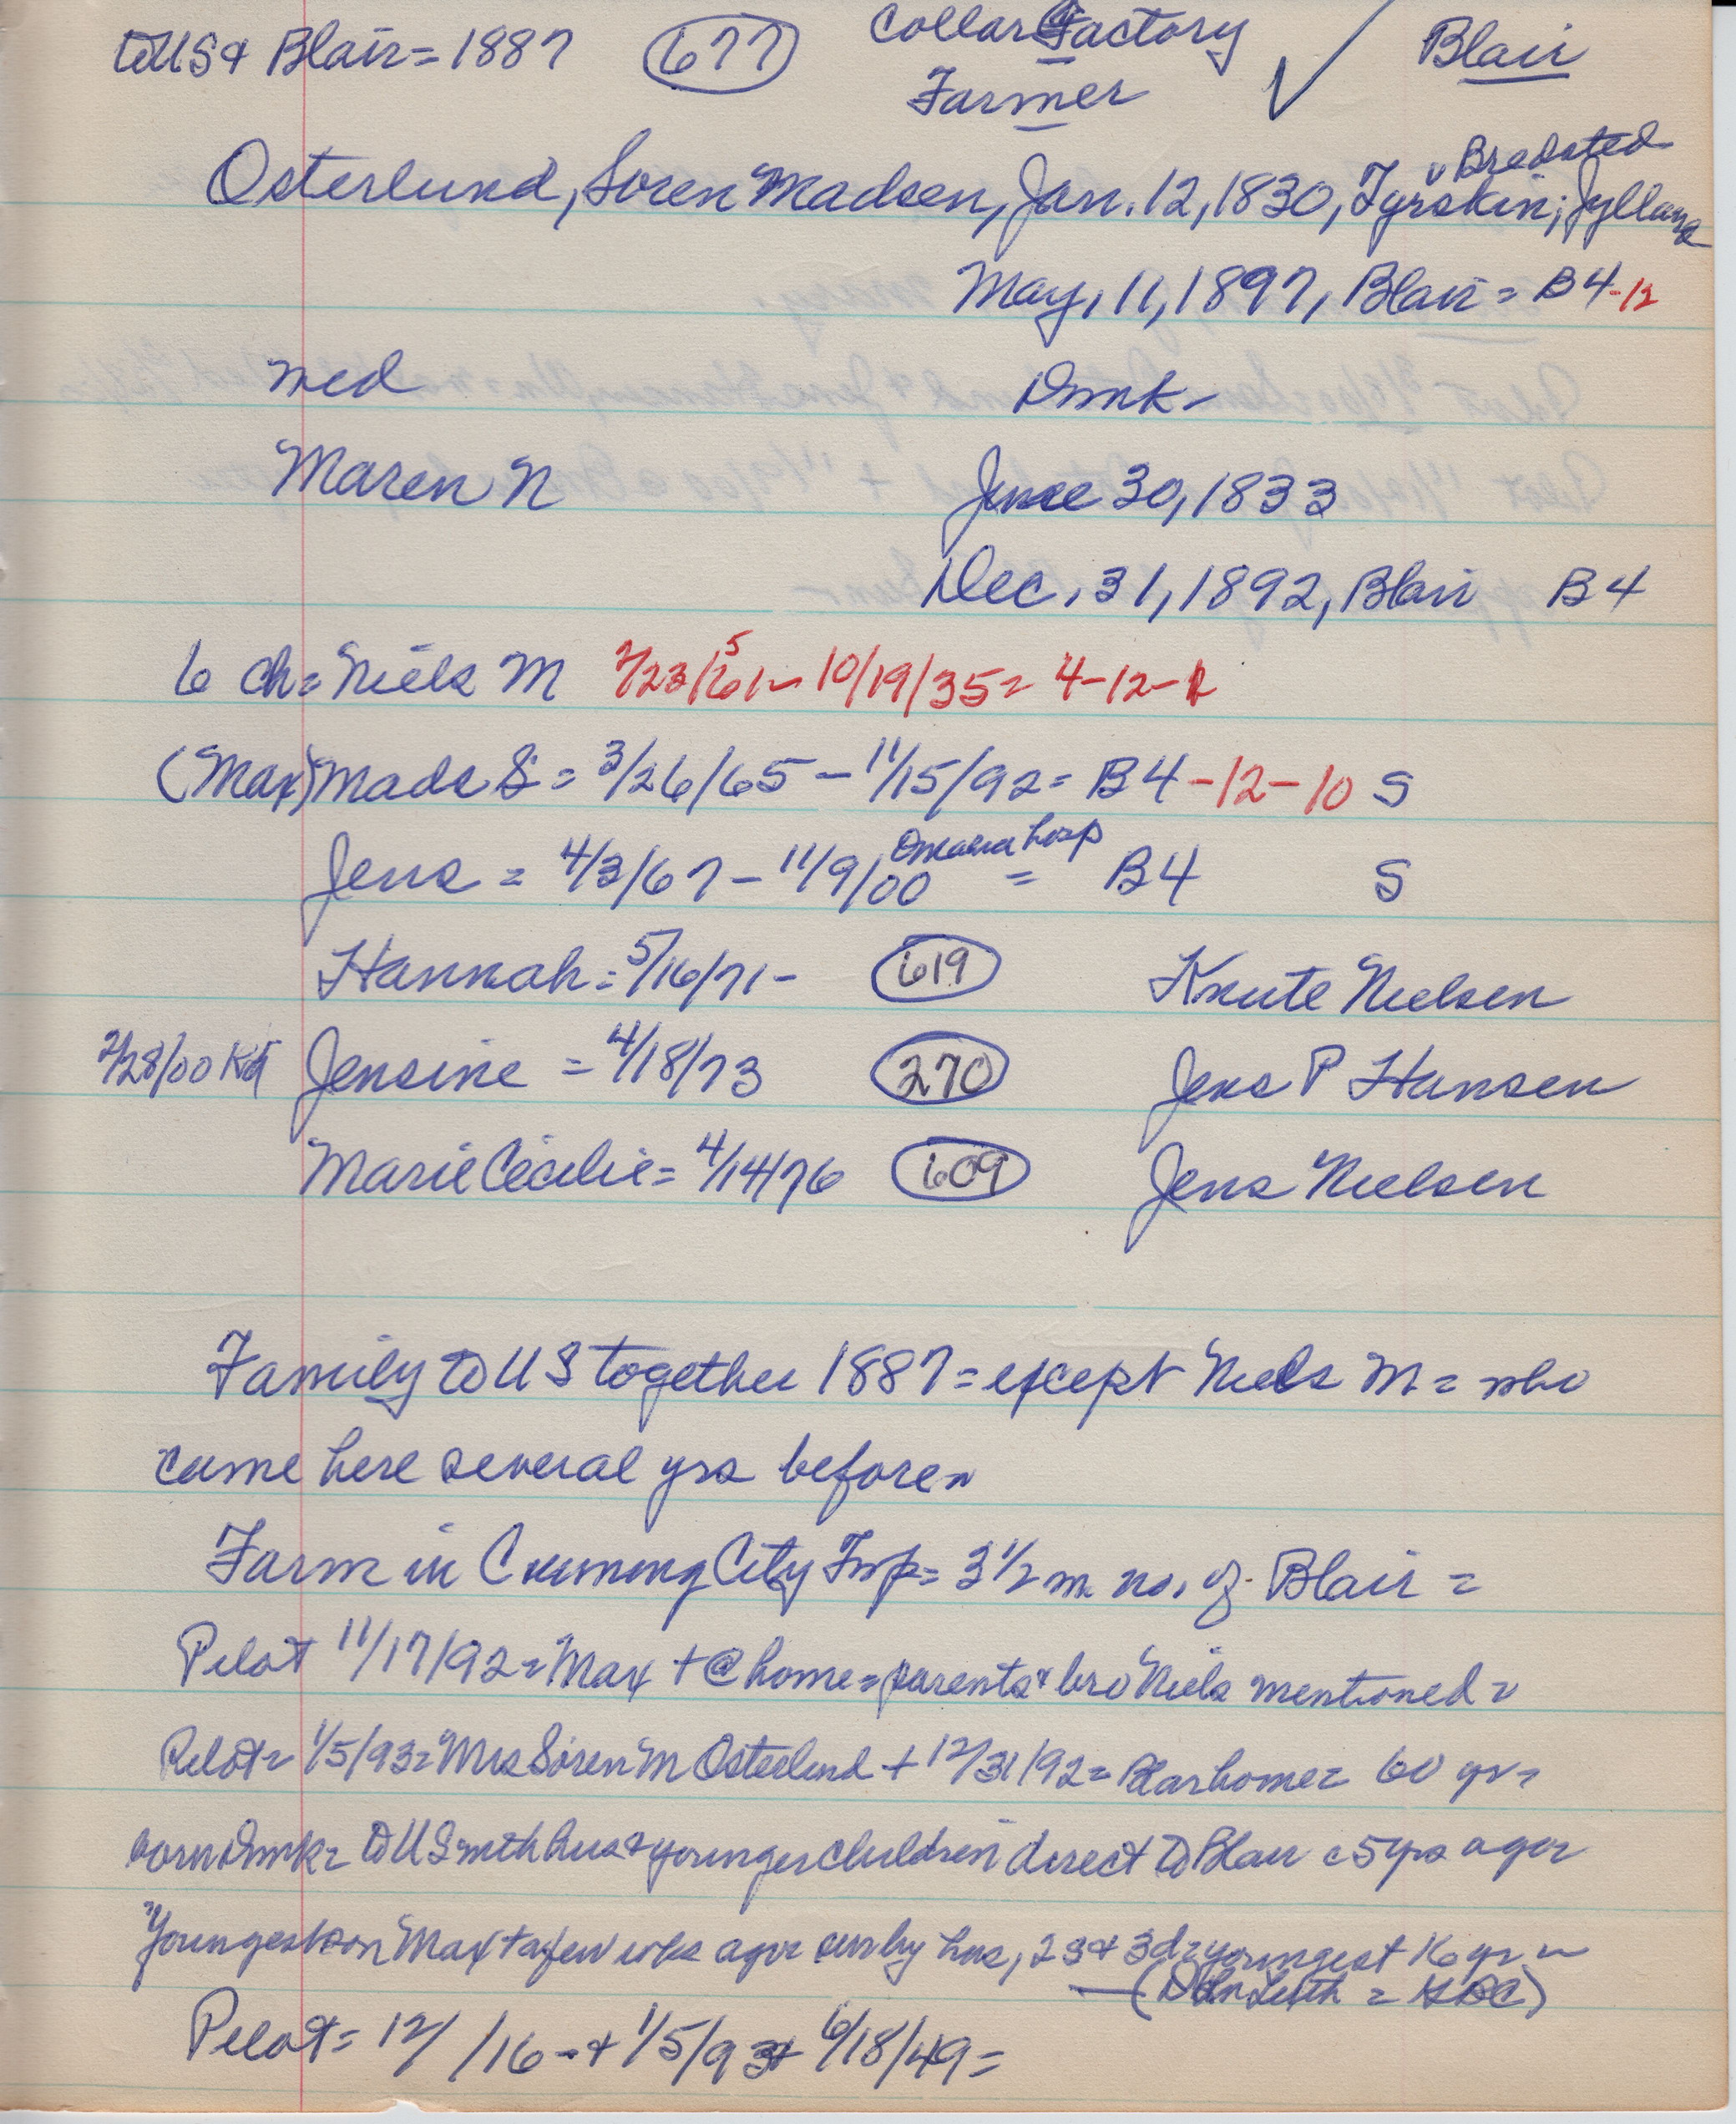 to US & Blair = 1887 677 Collar Factory ✓ Blair
Farmer
v Bredsted
Osterlund, Soren Madsen, Jan. 12, 1830, Tyrskin; Jylland
May, 11, 1897, Blair = B4-12
med Dmk-
Maren N June 30, 1833
Dec, 31, 1892, Blair B4
6 ch = Niels M 10/19/35 = 4-12-
(Max) Mads S = 3/26/65 - 11/15/92 = B4-12-10 S
Jens = 4/3/67 - 11/9/00 Omaha hosp = B4 S
Hannah = 5/16/71 - 619 Knute Nielsen
2/28/00 Kd Jensine = 4/18/73 270 Jens P Hansen
Marie Cecilie = 4/14/76 609 Jens Nielsen
Family to US together 1887 = except Niels M = who
came here several yrs before =
Farm in Cuming City Twp = 3 1/2 m no. of Blair =
Pilot 11/17/92 = Max + @ home = parents & bro Niels mentioned =
Pilot = 1/5/93 = Mrs Soren M Osterlund + 12/31/92 = Blair home = 60 yr =
born Dmk = to US with hus & younger children direct to Blair c 5 yrs ago =
Youngest son Max + a few wks ago = surv by hus, 2 s & 3 d = youngest 16 yr =
(Dan Luth =
Pilot = 12/ /16 - + 1/5/93 + 6/18/49 =